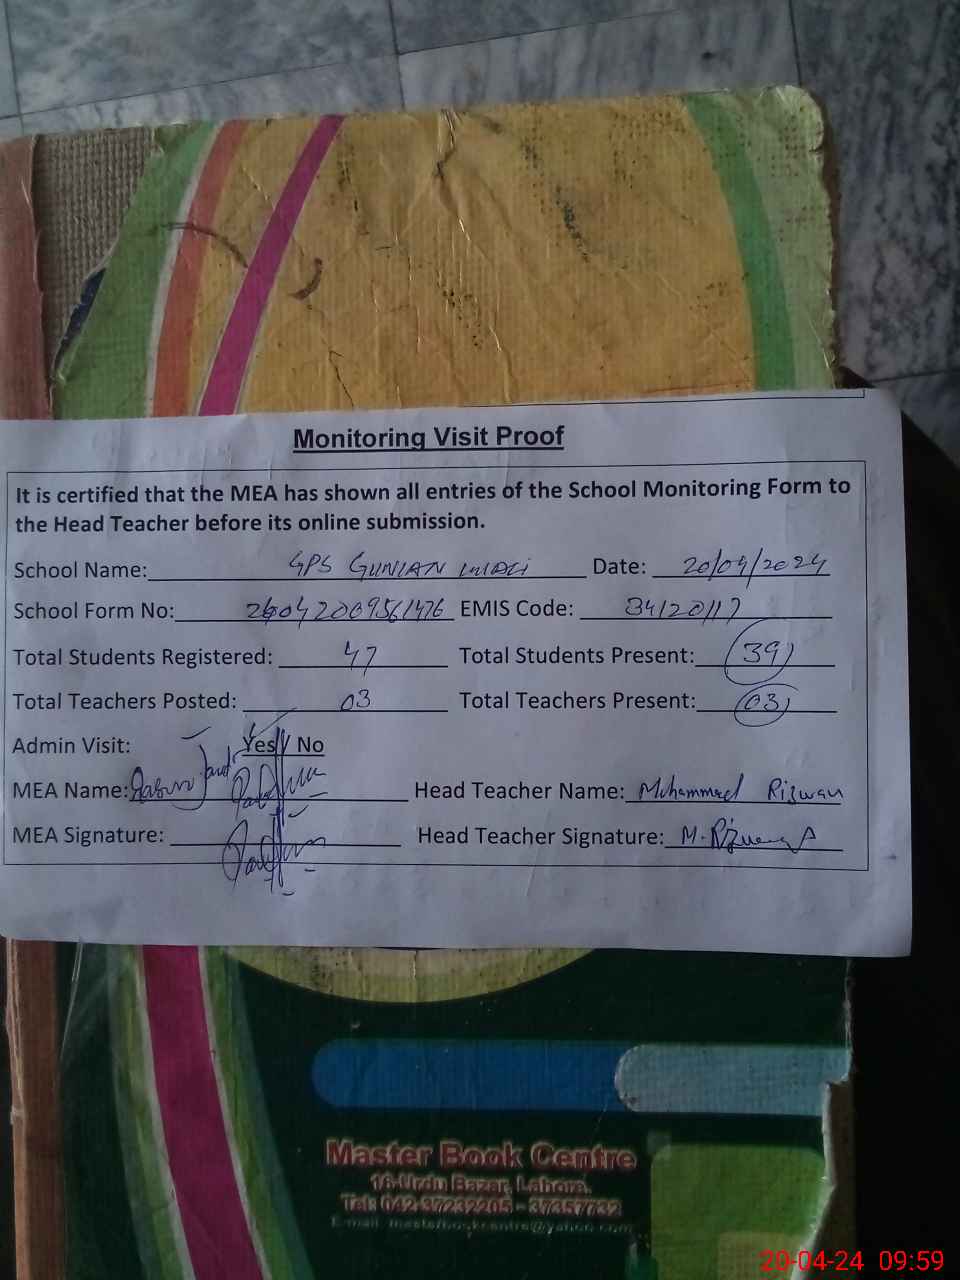 Monitoring Visit Proof
It is certified that the MEA has shown all entries of the School Monitoring Form to
the Head Teacher before its online submission.
School Name: GPS GUNIAN Date: 20/04/2024
School Form No: EMIS Code: 34120117
Total Students Registered: 47 Total Students Present: 39
Total Teachers Posted: 03 Total Teachers Present: 03
Admin Visit: Yes / No
MEA Name: Head Teacher Name: Muhammad Rizwan
MEA Signature: Head Teacher Signature: M. Rizwan
Master Book Centre
16-Urdu Bazar, Lahore.
Tel: 042-37232205 - 37357732
E-mail: masterbookcentre@yahoo.com
20-04-24 09:59